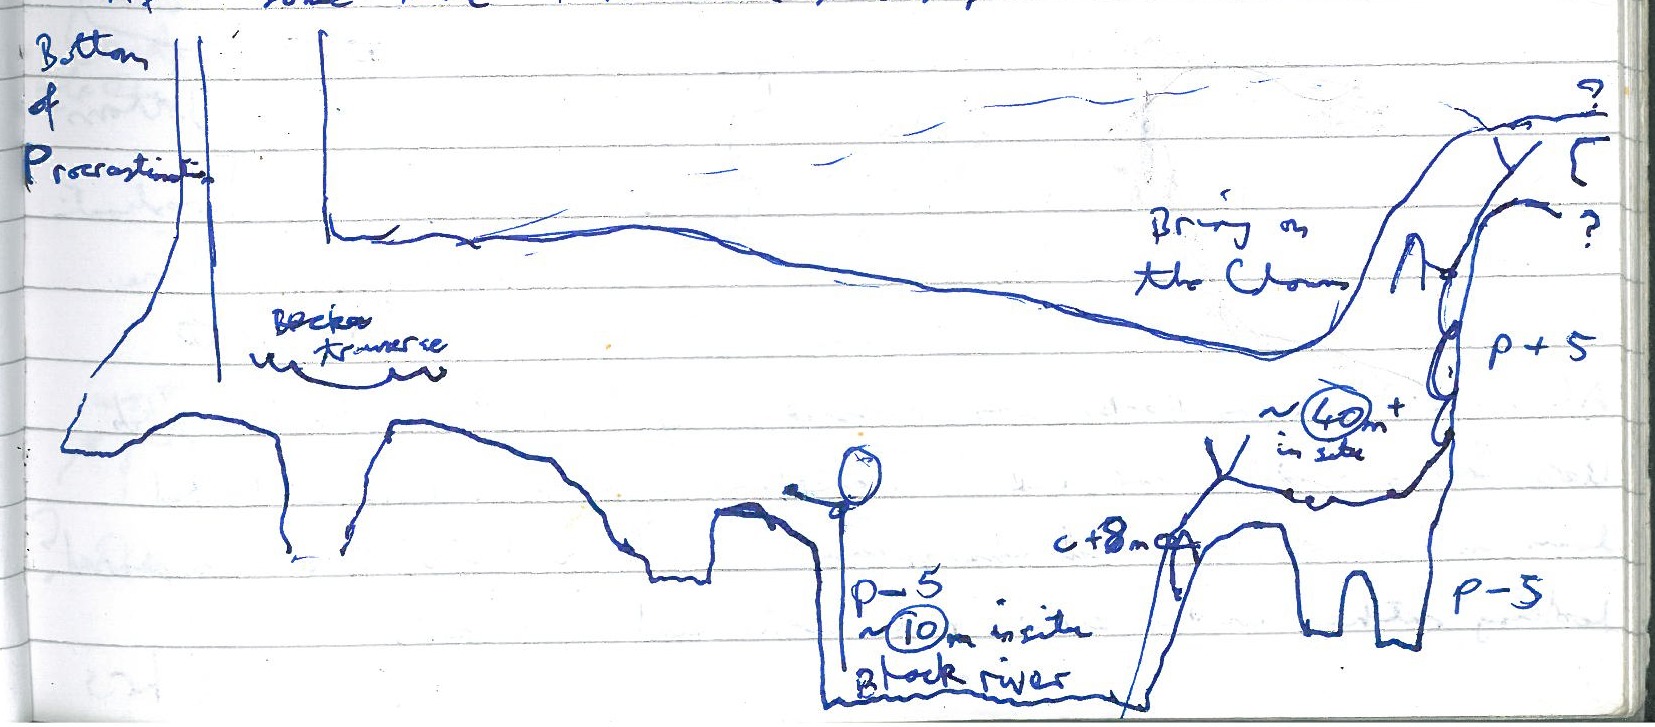 Bottom
of
Procrastination
?
?
Bring on
the Clowns
traverse
P+5
~40m+
in situ
c+8m
P-5
P-5
~10m in situ
Block river